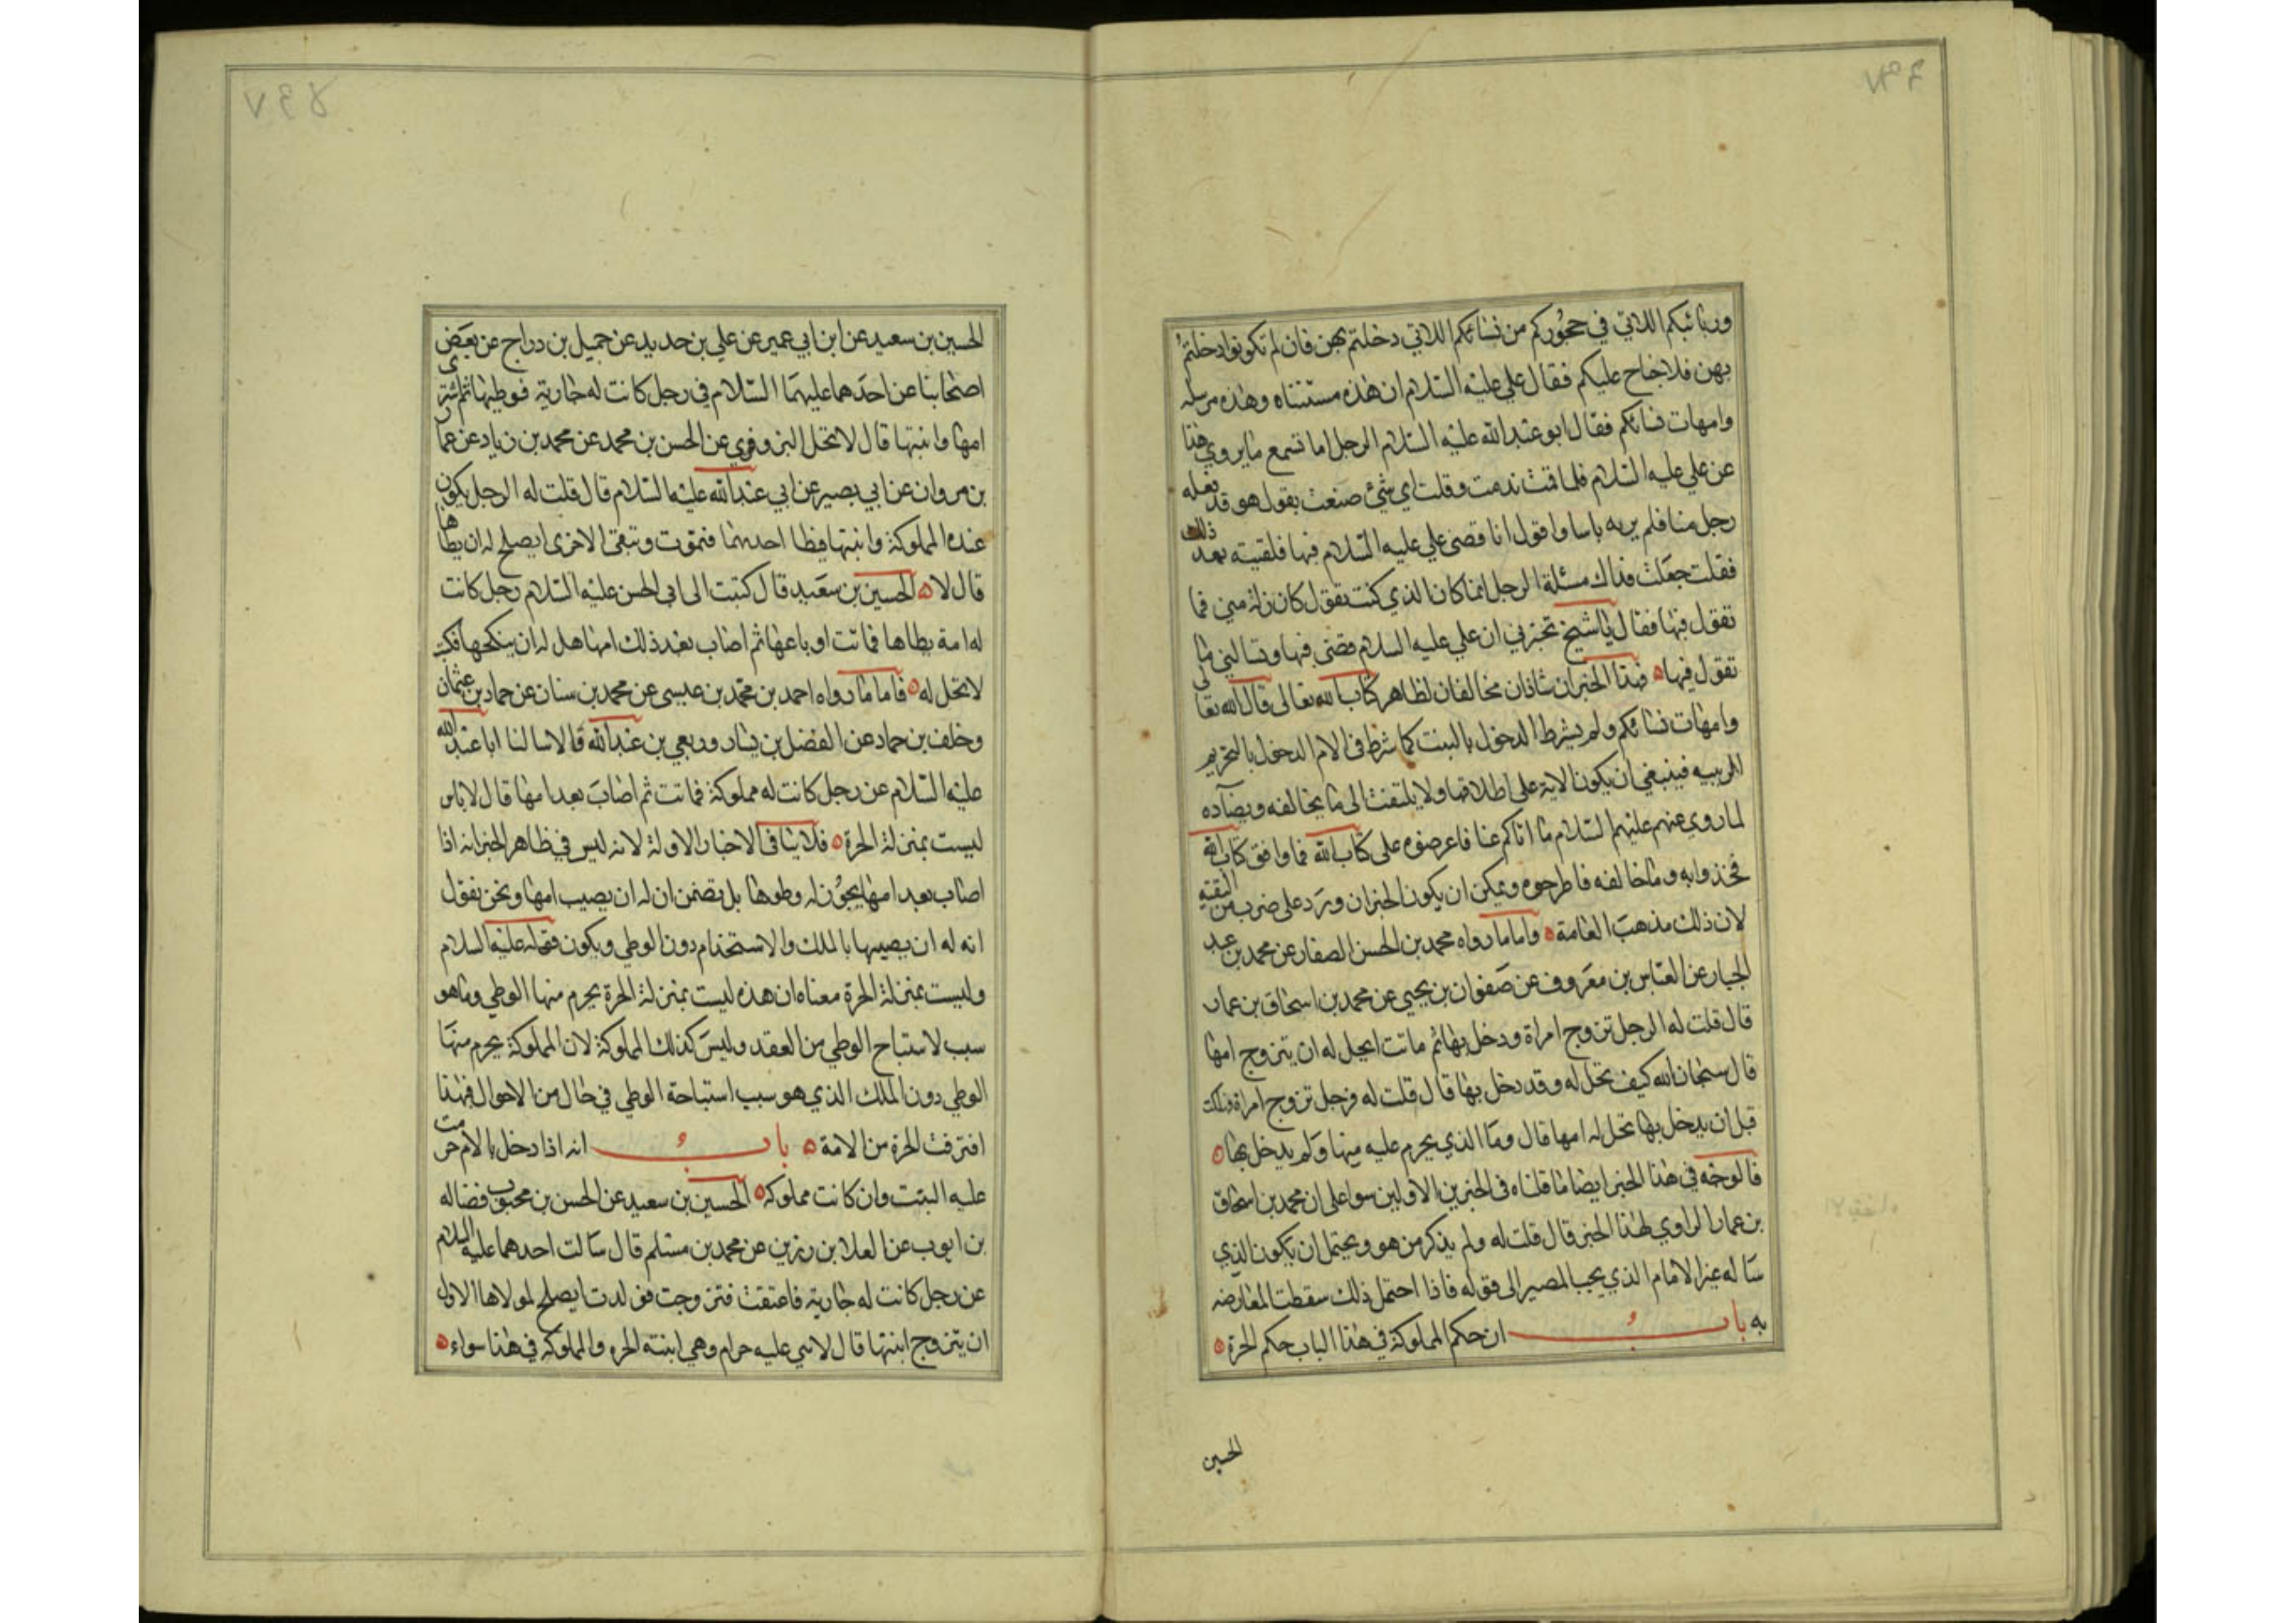 وربائبكم اللاتي في حجوركم من نسائكم اللاتي دخلتم بهن فان لم تكونوا دخلتم
بهن فلا جناح عليكم فقال علي عليه السلام ان هذه مستثناه وهذه مرسله
وامهات نسائكم فقال ابو عبد الله عليه السلام الرجل اما تسمع ما يروي هذا
عن علي عليه السلام فلما قمت ندمت وقلت اي شئ صنعت يقول هو قد فعله
رجل منا فلم ير به باسا واقول انا قضى علي عليه السلام فيها فلقيته بعد ذلك
فقلت جعلت فداك مسئلة الرجل انما كان الذي كنت تقول كان زلة مني فما
تقول فيها فقال يا شيخ تخبرني ان علي عليه السلام قضى فيها وتسالني ما
تقول فيها فهذا الخبران شاذان مخالفان لظاهر كتاب الله تعالى قال الله تعالى
وامهات نسائكم ولم يشرط الدخول بالبنت كما شرط في الام الدخول بالتحريم
الربيبه فينبغي ان يكون الاية على اطلاقها ولا يلتفت الى ما يخالفه ويضاده
لما روي عنهم عليهم السلام ما اتاكم عنا فاعرضوه على كتاب الله فما وافق كتاب الله
فخذوا به وما خالفه فاطرحوه ويمكن ان يكون الخبران ورد على ضرب من التقيه
لان ذلك مذهب العامة واما ما رواه محمد بن الحسن الصفار عن محمد بن عبد
الجبار عن العباس بن معروف عن صفوان بن يحيى عن محمد بن اسحاق بن عمار
قال قلت له الرجل تزوج امراة ودخل بها ثم ماتت ايحل له ان يتزوج امها
قال سبحان الله كيف تحل له وقد دخل بها قال قلت له فرجل تزوج امراة فهلكت
قبل ان يدخل بها تحل له امها قال وما الذي يحرم عليه منها ولم يدخل بها
فالوجه في هذا الخبر ايضا ما قلناه في الخبرين الاولين سوا على ان محمد بن اسحاق
بن عمار الراوي لهذا الخبر قال قلت له ولم يذكر من هو ويحتمل ان يكون الذي
ساله غير الامام الذي يجب المصير الى قوله فاذا احتمل ذلك سقطت المعارضه
به باب ان حكم المملوكة في هذا الباب حكم الحرة
الحسين
الحسين بن سعيد عن ابن ابي عمير عن علي بن حديد عن جميل بن دراج عن بعض
اصحابنا عن احدهما عليهما السلام في رجل كانت له جارية فوطيها ثم اشترى
امها وابنتها قال لا تحل البزوفري عن الحسن بن محمد عن محمد بن زياد عن عمار
بن مروان عن ابي بصير عن ابي عبد الله عليه السلام قال قلت له الرجل يكون
عنده المملوكة وابنتها فيطا احديهما فتموت وتبقى الاخرى ايصلح له ان يطاها
قال لا الحسين بن سعيد قال كتبت الى ابي الحسن عليه السلام رجل كانت
له امة يطاها فماتت او باعها ثم اصاب بعد ذلك امها هل له ان ينكحها فكتب
لا تحل له فاما ما رواه احمد بن محمد بن عيسى عن محمد بن سنان عن حماد بن عثمان
وخلف بن حماد عن الفضل بن يسار وربعي بن عبد الله قالا سالنا ابا عبد الله
عليه السلام عن رجل كانت له مملوكة فماتت ثم اصاب بعد امها قال لا باس
ليست بمنزلة الحرة فلا ينافى الاخبار الاولة لانه ليس في ظاهر الخبر انه اذا
اصاب بعد امها يجوز له وطوها بل تضمن ان له ان يصيب امها ونحن نقول
انه له ان يصيبها بالملك والاستخدام دون الوطي ويكون قوله عليه السلام
وليست بمنزلة الحرة معناه ان هذه ليست بمنزلة الحرة يحرم منها الوطي وما هو
سبب لاستباح الوطي من العقد وليس كذلك المملوكة لان المملوكة يحرم منها
الوطي دون الملك الذي هو سبب استباحة الوطي في حال من الاحوال فبهذا
افترقت الحرة من الامة باب انه اذا دخل بالام حرمت
عليه البنت وان كانت مملوكه الحسين بن سعيد عن الحسن بن محبوب فضاله
بن ايوب عن العلا بن رزين عن محمد بن مسلم قال سالت احدهما عليه السلام
عن رجل كانت له جارية فاعتقت فتزوجت فولدت ايصلح لمولاها الاول
ان يتزوج ابنتها قال لا هي عليه حرام وهي ابنته الحره والمملوكه في هذا سواء